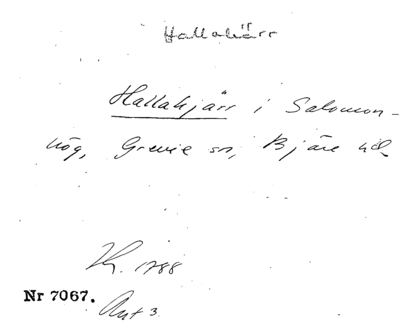 Hallakärr
Hallakjärr i Salomon-
hög, Grevie sn, Bjäre hd.
1788
Nr 7067.
Akt 3